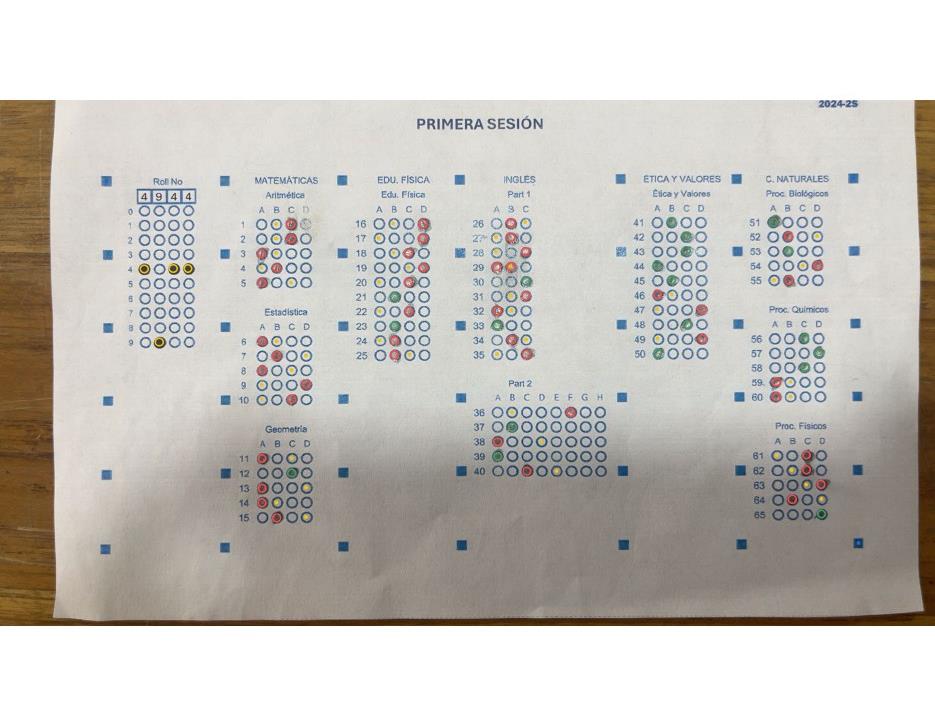 2024-2S
PRIMERA SESIÓN
Roll No
4 9 4 4
0
1
2
3
4
5
6
7
8
9
MATEMÁTICAS
Aritmética
A B C D
1
2
3
4
5
Estadística
A B C D
6
7
8
9
10
Geometría
A B C D
11
12
13
14
15
EDU. FÍSICA
Edu. Física
A B C D
16
17
18
19
20
21
22
23
24
25
INGLÉS
Part 1
A B C
26
27
28
29
30
31
32
33
34
35
Part 2
A B C D E F G H
36
37
38
39
40
ÉTICA Y VALORES
Ética y Valores
A B C D
41
42
43
44
45
46
47
48
49
50
C. NATURALES
Proc. Biológicos
A B C D
51
52
53
54
55
Proc. Químicos
A B C D
56
57
58
59
60
Proc. Físicos
A B C D
61
62
63
64
65